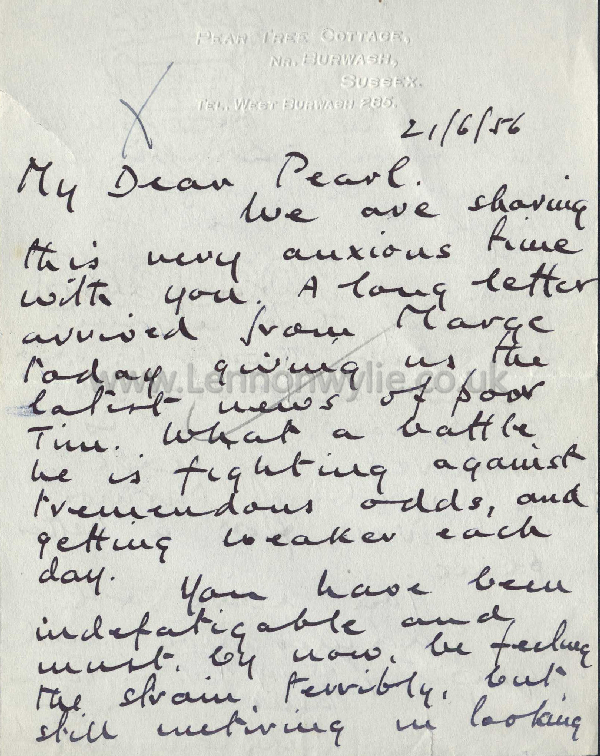 PEAR TREE COTTAGE,
NR. BURWASH,
SUSSEX.
TEL. WEST BURWASH 285.
21/6/56
My Dear Pearl.
We are sharing
this very anxious time
with you. A long letter
arrived from Marge
today giving us the
www.Lennonwylie.co.uk
latest news of poor
Tim. What a battle
he is fighting against
tremendous odds, and
getting weaker each
day. You have been
indefatigable and
must, by now, be feeling
the strain terribly, but
still untiring in looking